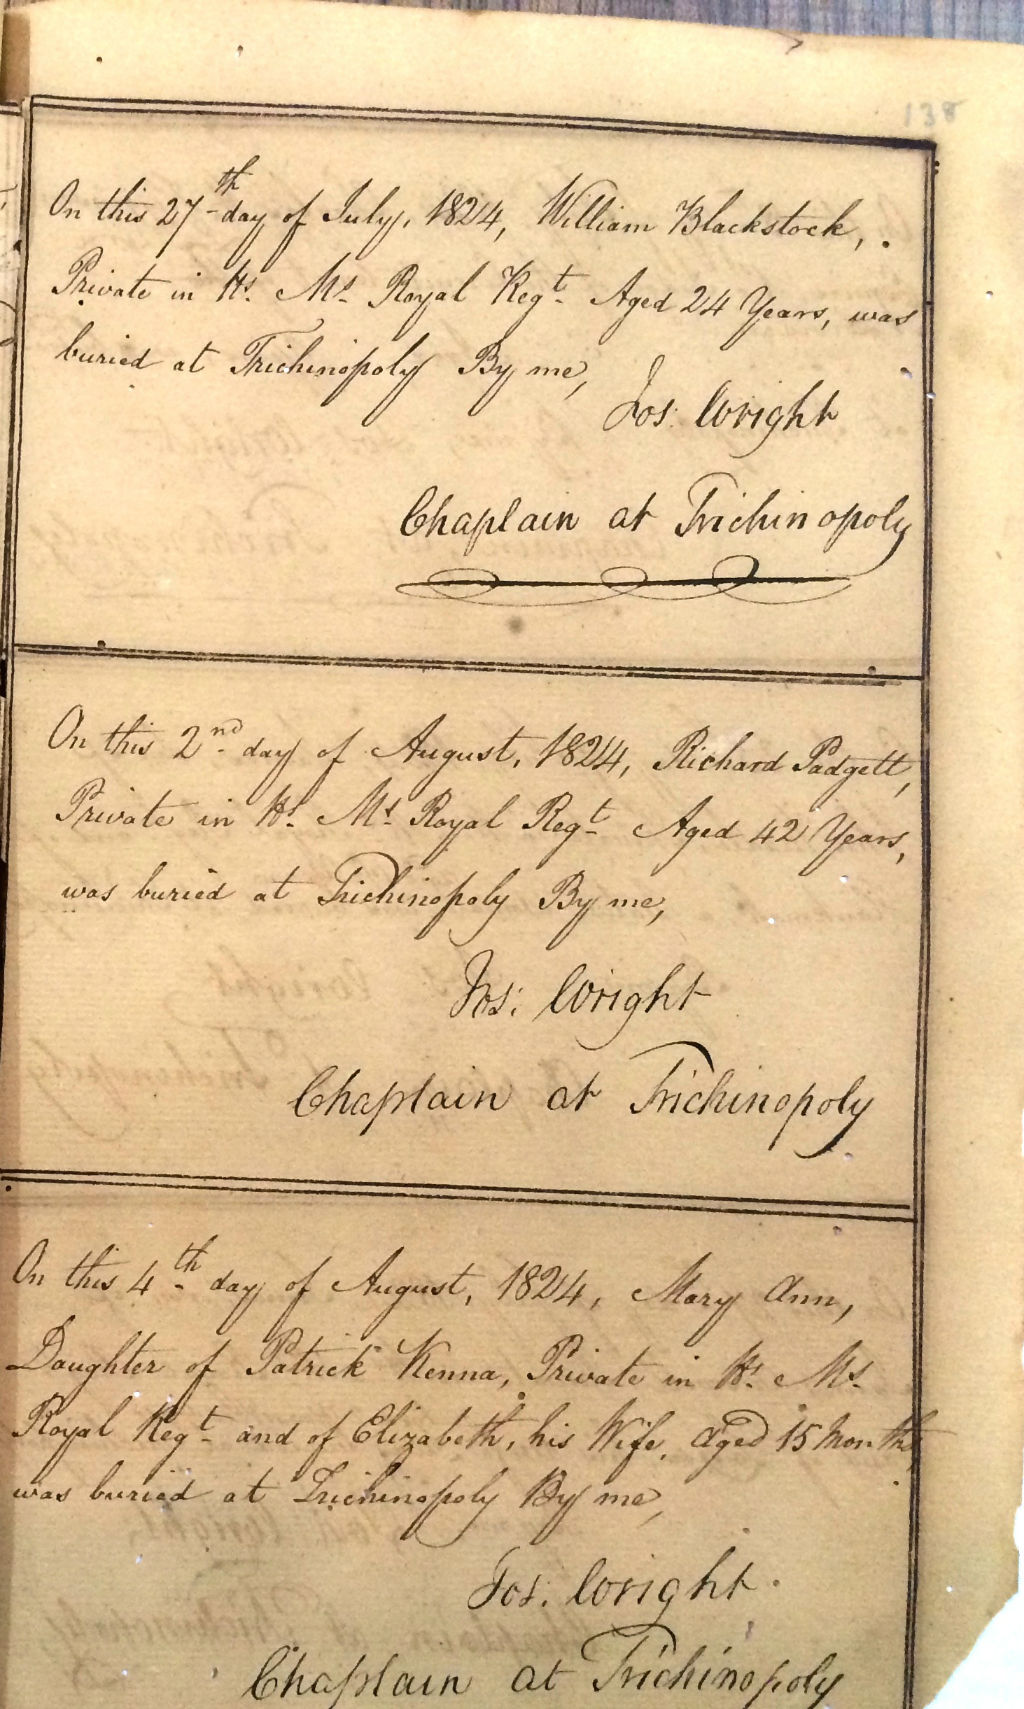 138
On this 27th day of July, 1824, William Blackstock,
Private in Hs. Ms. Royal Regt. Aged 24 Years, was
buried at Trichinopoly By me,
Jos: Wright
Chaplain at Trichinopoly
On this 2nd day of August, 1824, Richard Padgett,
Private in Hs. Ms. Royal Regt. Aged 42 Years,
was buried at Trichinopoly By me,
Jos: Wright
Chaplain at Trichinopoly
On this 4th day of August, 1824, Mary Ann,
Daughter of Patrick Kenna, Private in Hs. Ms.
Royal Regt. and of Elizabeth, his Wife, aged 15 Months
was buried at Trichinopoly By me,
Jos: Wright
Chaplain at Trichinopoly